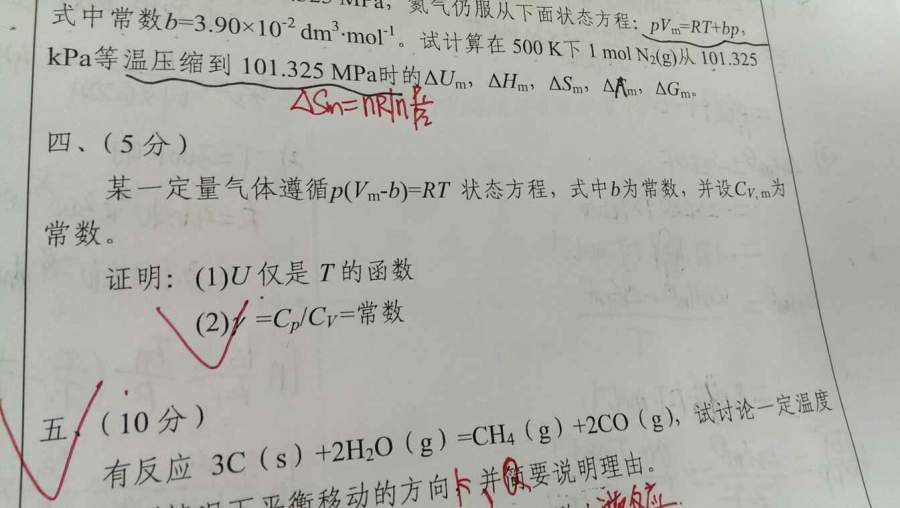 MPa，氮气仍服从下面状态方程：pVm=RT+bp，
式中常数b=3.90×10⁻² dm³·mol⁻¹。试计算在 500 K下 1 mol N₂(g)从 101.325
kPa等温压缩到 101.325 MPa时的ΔUm，ΔHm，ΔSm，ΔAm，ΔGm。
ΔSm=nRln p₁/p₂
四、（5 分）
某一定量气体遵循p(Vm-b)=RT 状态方程，式中b为常数，并设CV,m为
常数。
证明：(1)U 仅是 T 的函数
(2)γ =Cp/CV=常数
五、（10 分）
有反应 3C（s）+2H₂O（g）=CH₄（g）+2CO（g），试讨论一定温度
下平衡移动的方向，并简要说明理由。